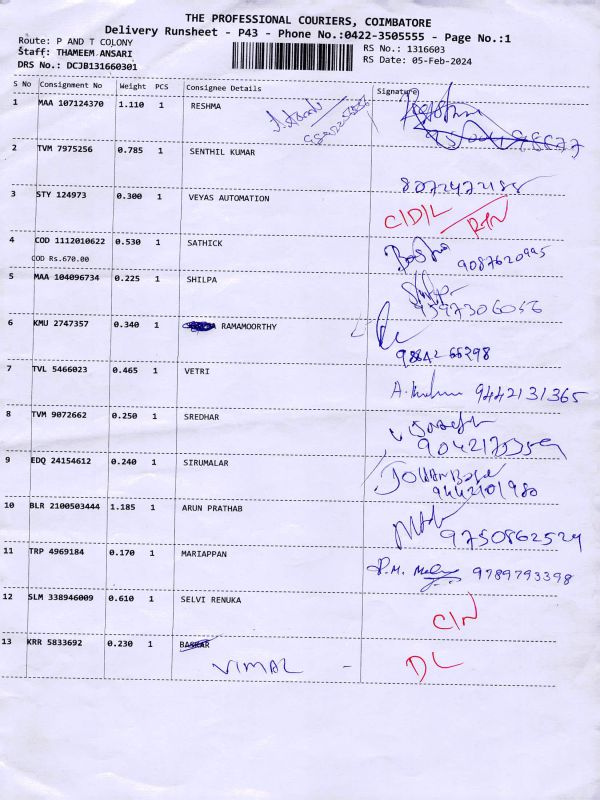 THE PROFESSIONAL COURIERS, COIMBATORE
Delivery Runsheet - P43 - Phone No.:0422-3505555 - Page No.:1
Route: P AND T COLONY
Staff: THAMEEM ANSARI
DRS No.: DCJB131660301
RS No.: 1316603
RS Date: 05-Feb-2024
S No Consignment No Weight PCS Consignee Details Signature
1 MAA 107124370 1.110 1 RESHMA
2 TVM 7975256 0.785 1 SENTHIL KUMAR
3 STY 124973 0.300 1 VEYAS AUTOMATION C/D/L RTN
4 COD 1112010622 0.530 1 SATHICK
COD Rs.670.00
9087620995
5 MAA 104096734 0.225 1 SHILPA
6 KMU 2747357 0.340 1 RAMAMOORTHY
7 TVL 5466023 0.465 1 VETRI 9442131365
8 TVM 9072662 0.250 1 SREDHAR
9 EDQ 24154612 0.240 1 SIRUMALAR
9442101980
10 BLR 2100503444 1.185 1 ARUN PRATHAB
9750862524
11 TRP 4969184 0.170 1 MARIAPPAN 9789793398
12 SLM 338946009 0.610 1 SELVI RENUKA C/N
13 KRR 5833692 0.230 1
VIMAL - DL